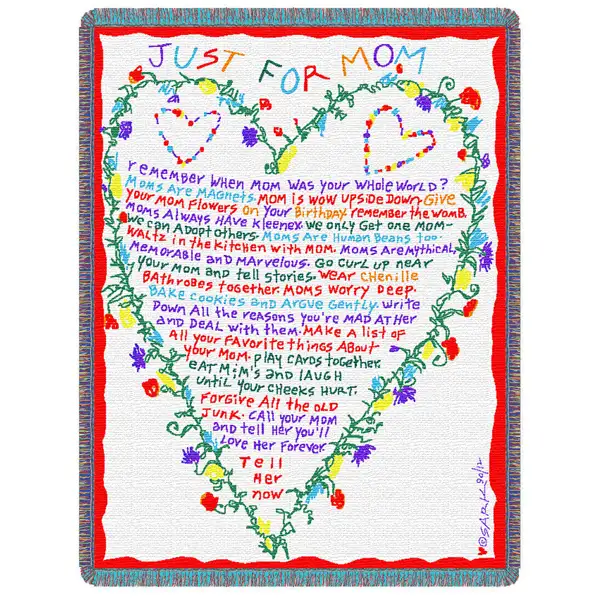 JUST FOR MOM
remember when mom was your whole world?
Moms are magnets. Mom is wow upside down. Give
your mom flowers on your Birthday. remember the womb.
Moms always have Kleenex. we only get one mom-
we can adopt others. Moms are Human Beans too.
Waltz in the kitchen with mom. Moms are mythical,
memorable and marvelous. Go curl up near
your mom and tell stories. wear CHenille
BAthrobes together. Moms worry Deep.
Bake cookies and Argue Gently. write
Down All the reasons you're MAD at Her
and DEAL with them. Make a list of
All your FAVorite things About
your Mom. play cards together.
eat M;M's and laugh
until your cheeks Hurt.
Forgive All the OLD
Junk. CAll your Mom
and tell Her you'll
Love Her Forever.
Tell
Her
now
♥©SARK 90/12